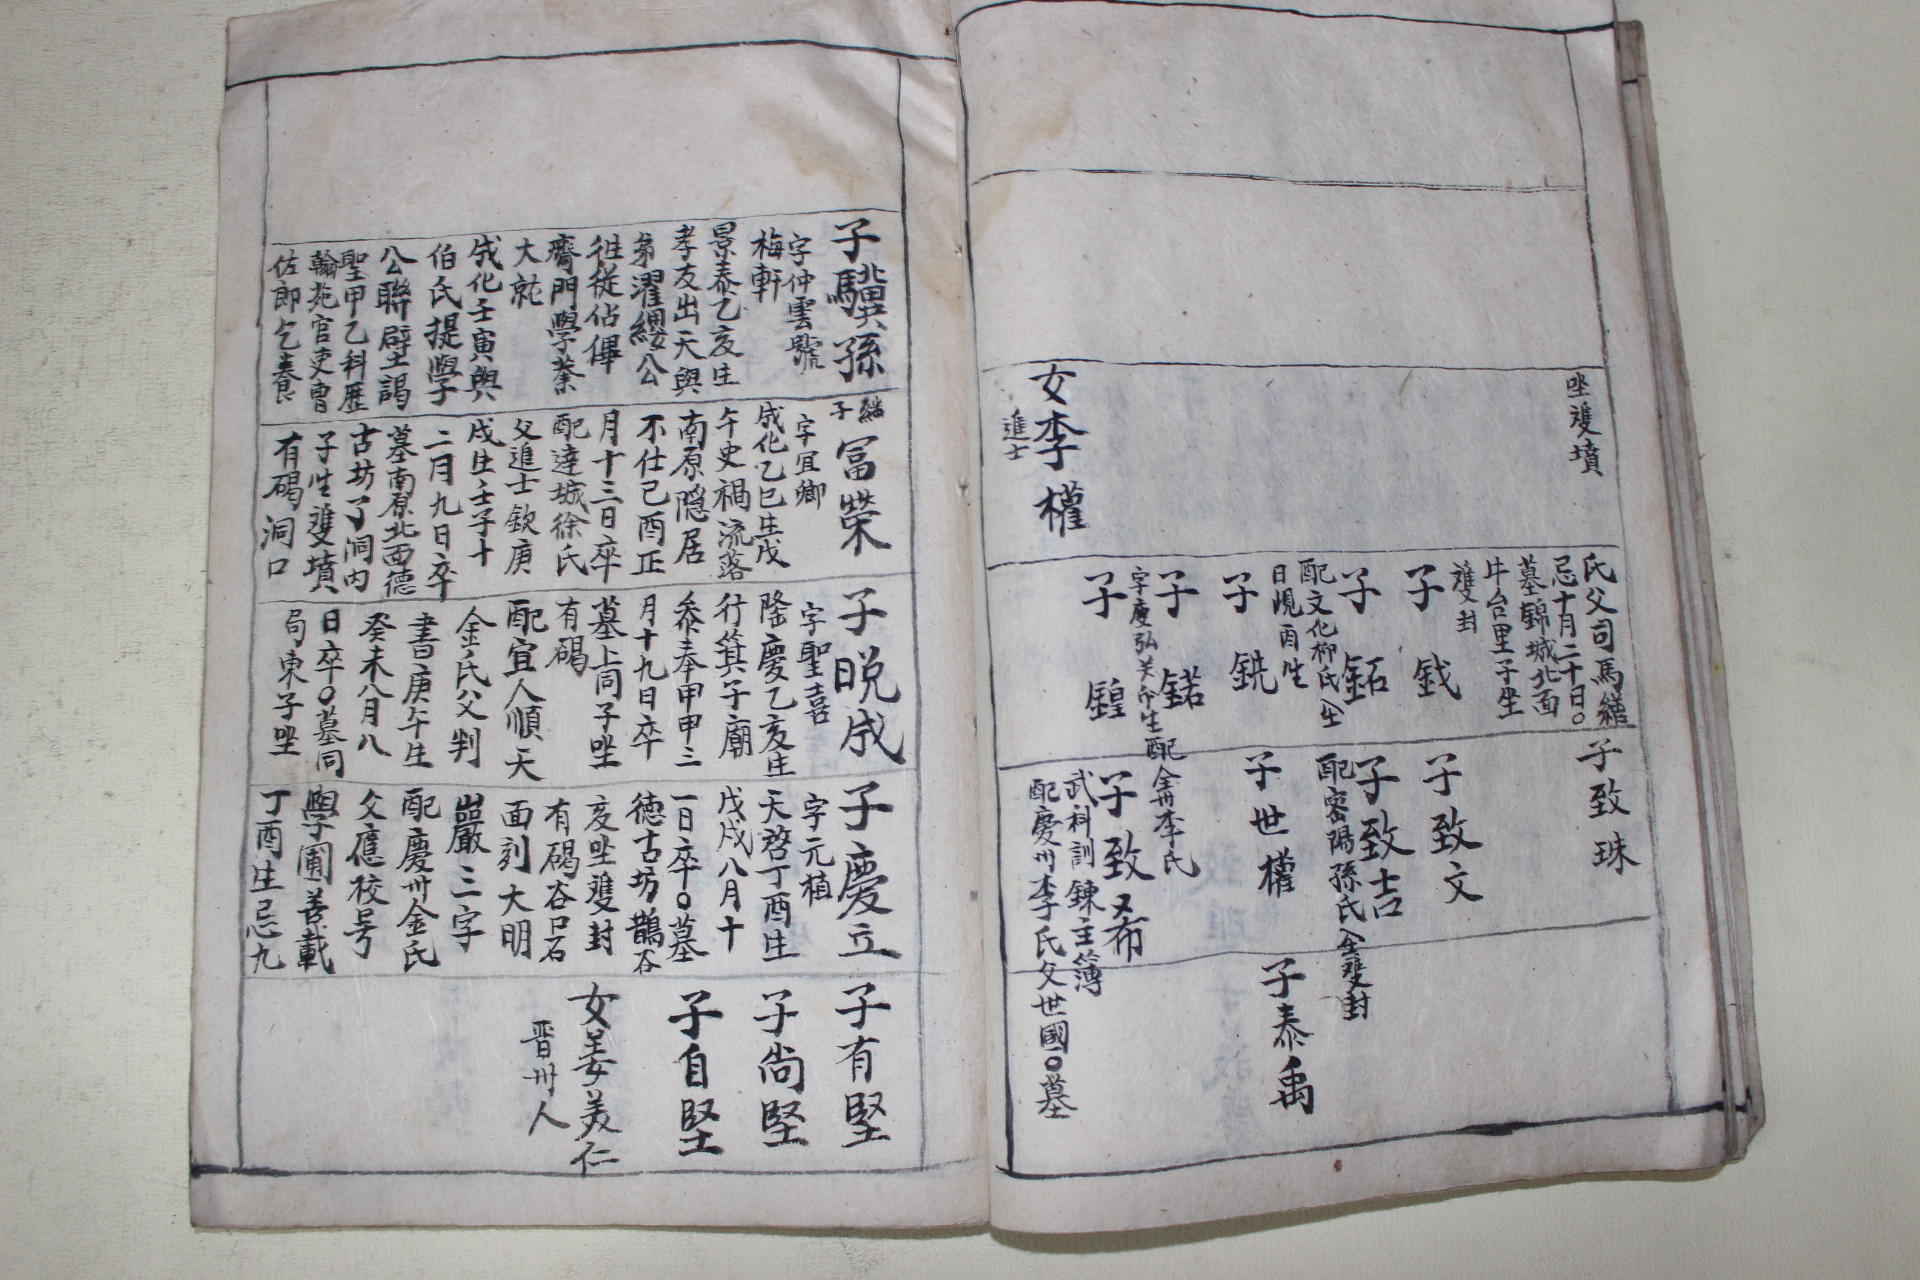 坐雙墳
女李權
進士
氏父司馬繼
忌十月二十日○
墓錦城北面
牛台里子坐
雙封
子鉞
子鉐
配文化柳氏全
日峴酉坐
子銑
子鍩
字慶弘癸卯生配全州李氏
子鍠
子致珠
子致文
子致吉
配密陽孫氏全雙封
子世權
子致希
武科訓鍊主簿
配慶州李氏父世國○墓
子泰禹
子驥孫
字仲雲號
梅軒
景泰乙亥生
孝友出天與
弟濯纓公
徃從佔俾
齋門學業
大就
成化壬寅與
伯氏提學
公聯璧謁
聖甲乙科歷
翰苑官吏曺
佐郎乞養
繼子富榮
字宜卿
成化乙巳生戊
午史禍流落
南原隱居
不仕己酉正
月十三日卒
配達城徐氏
父進士欽庚
戌生壬子十
二月九日卒
墓南原北面德
古坊了洞內
子坐雙墳
有碣洞口
子晩成
字聖喜
隆慶乙亥生
行箕子廟
叅奉甲申三
月十九日卒
墓上同子坐
有碣
配宜人順天
金氏父判
書庚午生
癸未八月八
日卒○墓同
局東子坐
子慶立
字元植
天啓丁酉生
戊戌八月十
一日卒○墓
德古坊鵲谷
亥坐雙封
有碣谷口石
面刻大明
巖三字
配慶州金氏
父應校号
學圃善載
丁酉生忌九
子有堅
子尙堅
子自堅
女姜美仁
晋州人